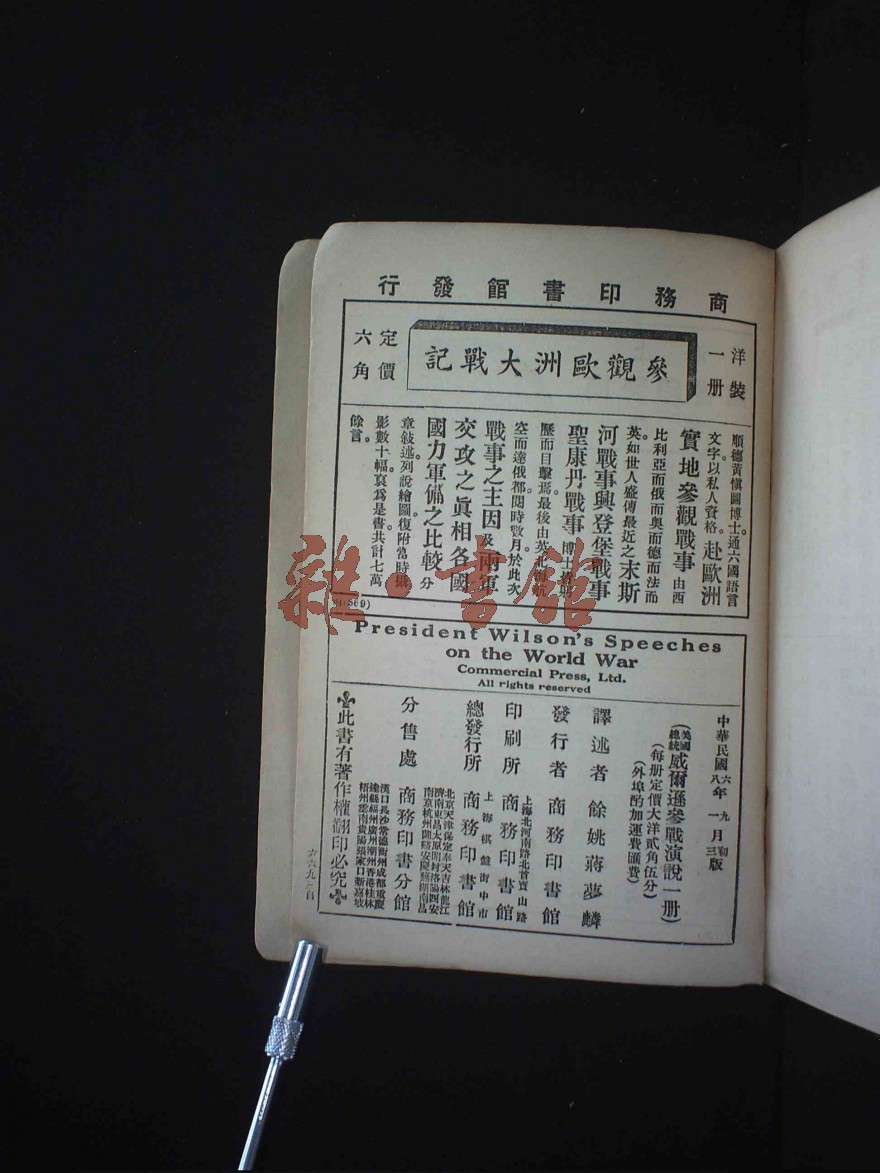 商務印書館發行
洋裝一册
參觀歐洲大戰記
定價六角
順德黃愼圖博士通六國語言
文字以私人資格。赴歐洲
實地參觀戰事 由西
比利亞而俄而奧而德而法而
英。如世人盛傳最近之末斯
河戰事興登堡戰事
聖康丹戰事 博士皆身
歷而目擊焉。最後由英北海航
空而達俄都。閱時數月。於此次
戰事之主因及兩軍
交攻之眞相各國
國力軍備之比較 分
章敍述。列說繪圖。復附當時攝
影數十幅。裒爲是書。共計七萬
餘言。
President Wilson's Speeches
on the World War
Commercial Press, Ltd.
All rights reserved
中華民國六年九月初版
八年一月三版
(美國總統威爾遜參戰演說一册)
(每册定價大洋貳角伍分)
(外埠酌加運費匯費)
譯述者 餘姚蔣夢麟
發行者 商務印書館
上海北河南路北首寶山路
印刷所 商務印書館
上海棋盤街中市
總發行所 商務印書館
北京天津保定奉天吉林龍江
濟南東昌太原開封洛陽西安
南京杭州蘭谿安慶蕪湖南昌
分售處 商務印書分館
漢口長沙常德衡州成都重慶
達縣福州廣州潮州香港桂林
梧州雲南貴陽張家口新嘉坡
此書有著作權翻印必究
雜·書館